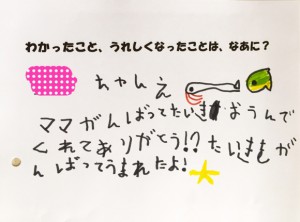 わかったこと、うれしくなったことは、なあに？
ちゃんえ
ママがんばってたいきおうんで
くれてありがとう!?たいきもが
んばってうまれたよ!